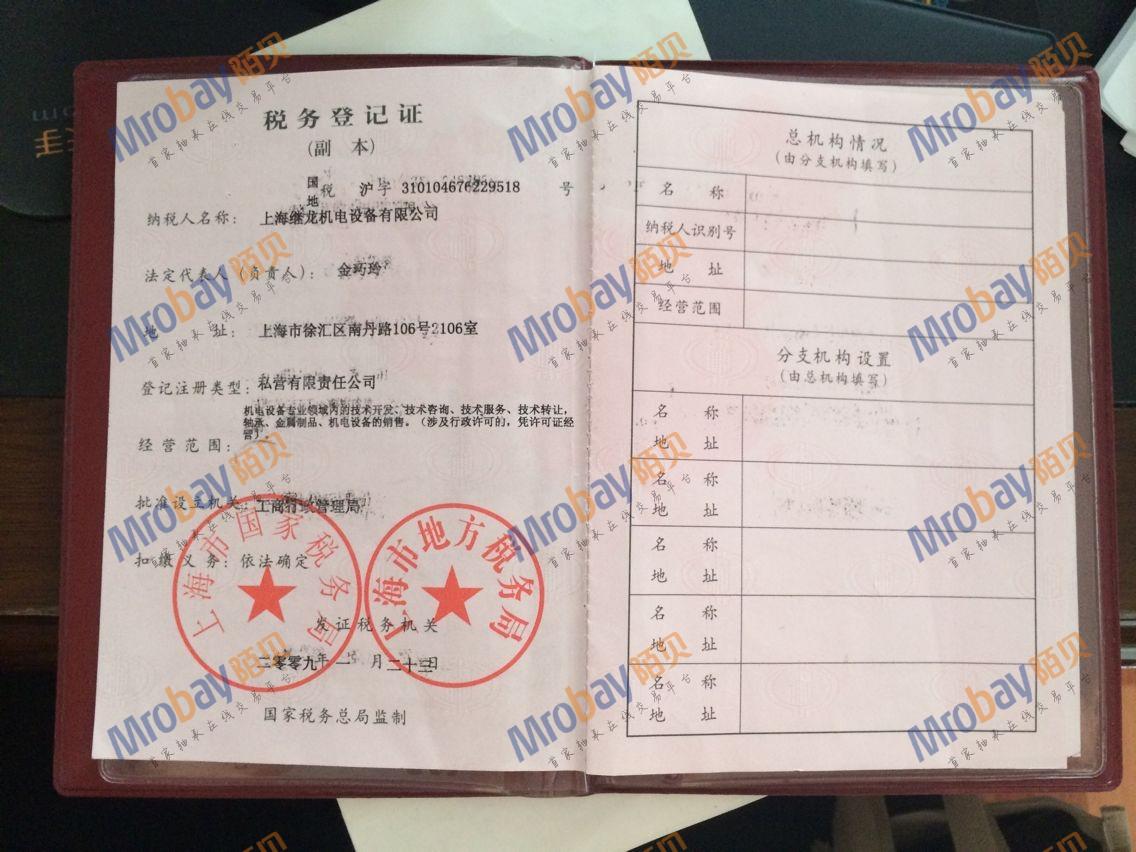 税务登记证
(副 本)
国
地
税 沪字 310104676229518 号
纳税人名称: 上海继龙机电设备有限公司
法定代表人(负责人): 金巧玲
地 址: 上海市徐汇区南丹路106号2106室
登记注册类型: 私营有限责任公司
机电设备专业领域内的技术开发、技术咨询、技术服务、技术转让,
轴承、金属制品、机电设备的销售。(涉及行政许可的,凭许可证经
营)。
经营范围:
批准设立机关: 工商行政管理局
扣缴义务: 依法确定
上海市国家税务局
上海市地方税务局
发证税务机关
二零零九年 一 月 二十三 日
国家税务总局监制
总机构情况
(由分支机构填写)
名 称
纳税人识别号
地 址
经营范围
分支机构设置
(由总机构填写)
名 称
地 址
名 称
地 址
名 称
地 址
名 称
地 址
名 称
地 址
Mrobay陌贝
首家轴承在线交易平台